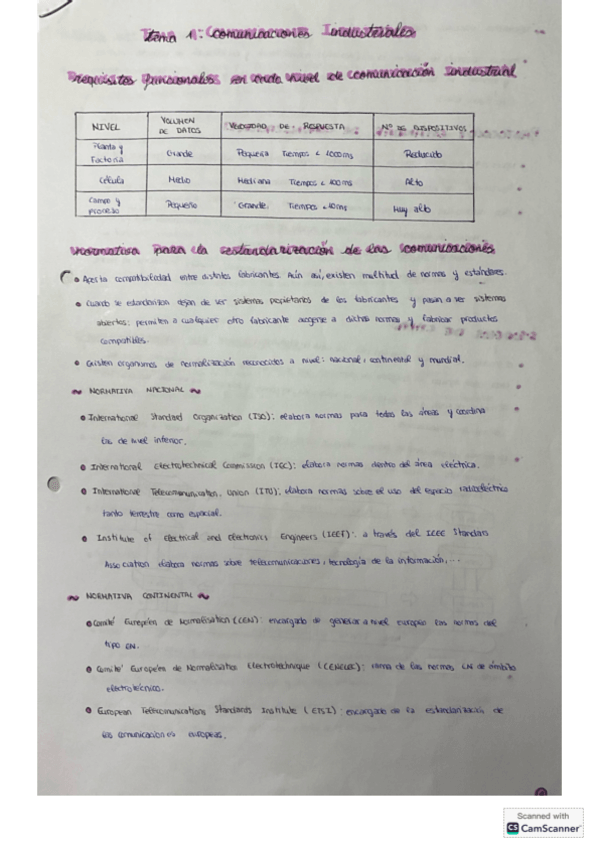 Tema 1: Comunicaciones Industriales
Requisitos funcionales en cada nivel de comunicación industrial
NIVEL | VOLUMEN DE DATOS | VELOCIDAD DE RESPUESTA | Nº DE DISPOSITIVOS
Planta y Factoría | Grande | Pequeña Tiempos < 1000ms | Reducido
Célula | Medio | Mediana Tiempos < 100ms | Alto
Campo y proceso | Pequeño | Grande Tiempos < 10ms | Muy alto
Normativa para la estandarización de las comunicaciones
compatibilidad entre distintos fabricantes. Aún así, existen multitud de normas y estándares.
Cuando se estandarizan dejan de ser sistemas propietarios de los fabricantes y pasan a ser sistemas
abiertos: permiten a cualquier otro fabricante acogerse a dichas normas y fabricar productos
compatibles.
Existen organismos de normalización reconocidos a nivel: nacional, continental y mundial.
~ NORMATIVA NACIONAL ~
International Standard Organization (ISO): elabora normas para todas las áreas y coordina
las de nivel inferior.
International Electrotechnical Commission (IEC): elabora normas dentro del área eléctrica.
International Telecomunication, Union (ITU): elabora normas sobre el uso del espacio radioeléctrico
tanto terrestre como espacial.
Institute of Electrical and electronics Engineers (IEEE): a través del IEEE Standars
Association elabora normas sobre telecomunicaciones, tecnología de la información,...
~ NORMATIVA CONTINENTAL ~
Comité Européen de Normalisation (CEN): encargado de gestionar a nivel europeo las normas del
tipo EN.
Comité Européen de Normalisation Electrotechnique (CENELEC): de las normas EN de ámbito
electrotécnico.
European Telecomunications Standards Institute (ETSI): encargado de la estandarizac. de
las comunicaciones europeas.
Scanned with
CS CamScanner